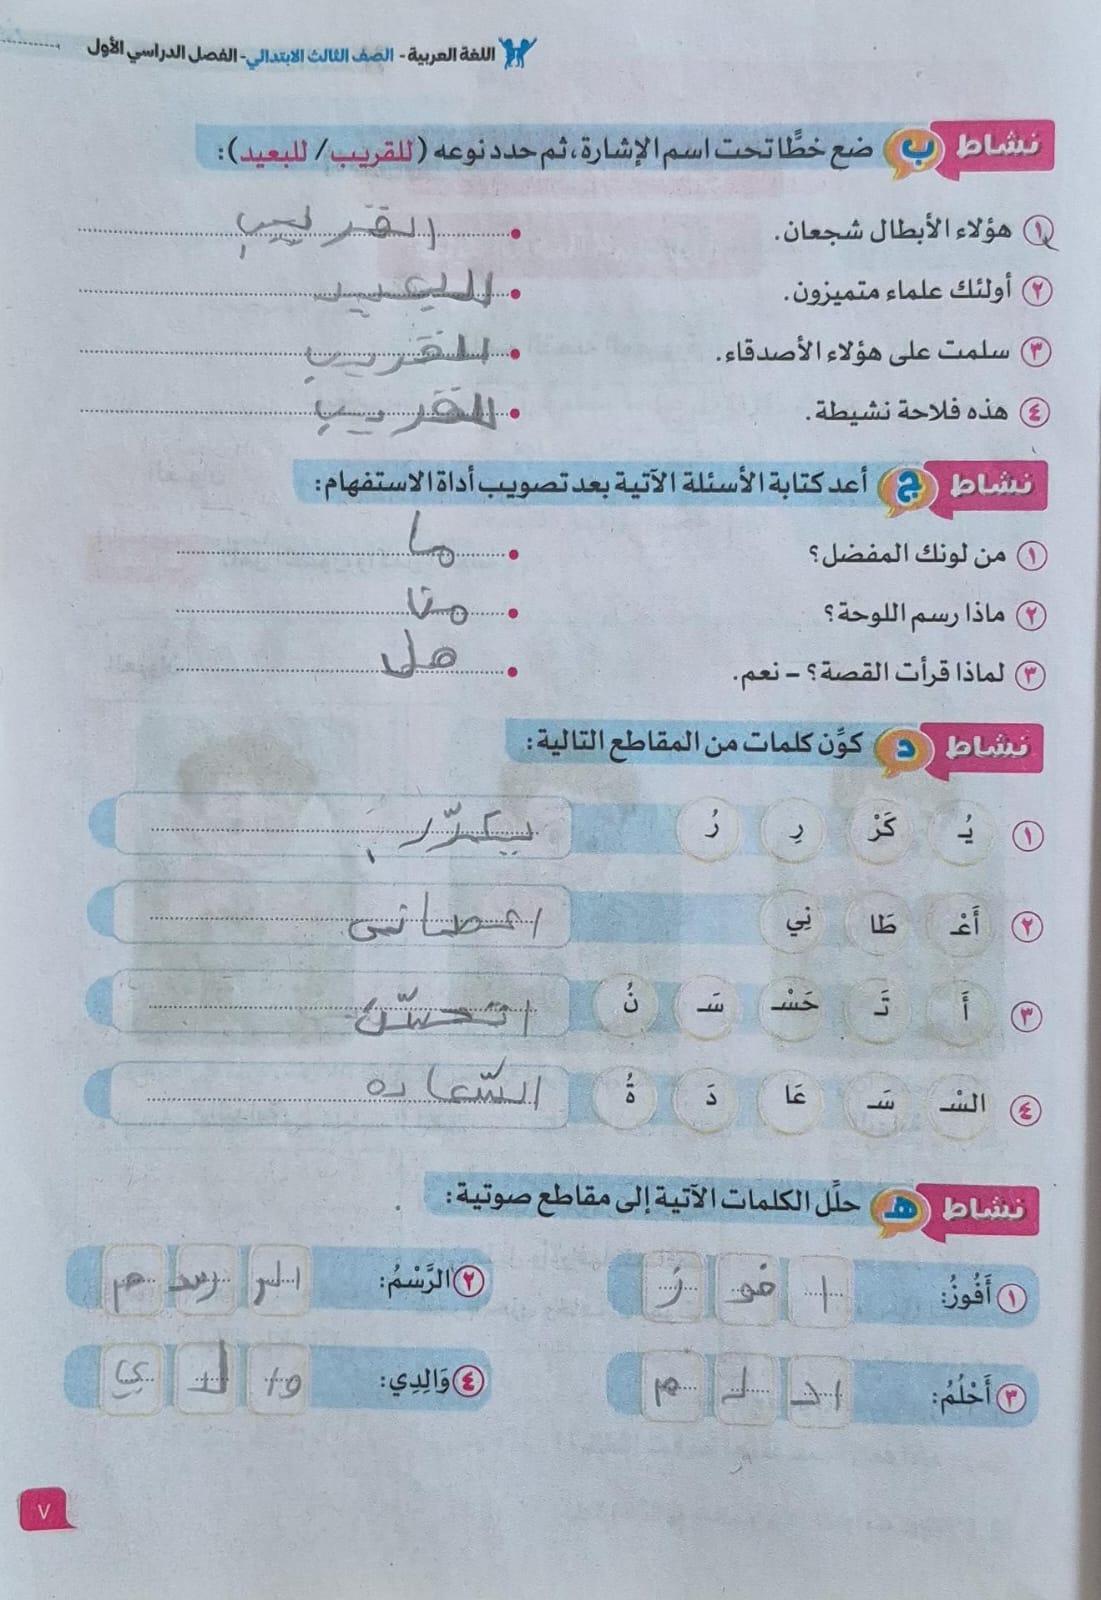 اللغة العربية - الصف الثالث الابتدائي - الفصل الدراسي الأول
نشاط ب ضع خطًّا تحت اسم الإشارة، ثم حدد نوعه (للقريب/ للبعيد):
١ هؤلاء الأبطال شجعان. القريب
٢ أولئك علماء متميزون. البعيد
٣ سلمت على هؤلاء الأصدقاء. القريب
٤ هذه فلاحة نشيطة. القريب
نشاط ج أعد كتابة الأسئلة الآتية بعد تصويب أداة الاستفهام:
١ من لونك المفضل؟ ما
٢ ماذا رسم اللوحة؟
٣ لماذا قرأت القصة؟ - نعم. هل
نشاط د كوِّن كلمات من المقاطع التالية:
١ يُـ كَرْ رِ رُ يكرّر
٢ أَعْـ طَا نِي اعطانى
٣ أَ تَـ حَسْـ سَـ نُ اتحسّن
٤ السْـ سَـ عَا دَ ةُ السّعاده
نشاط هـ حلِّل الكلمات الآتية إلى مقاطع صوتية:
١ أَفُوزُ: ا فو ز ٢ الرَّسْمُ: الر رسـ م
٣ أَحْلُمُ: احـ لـ م ٤ وَالِدِي: وا لـ دي
٧